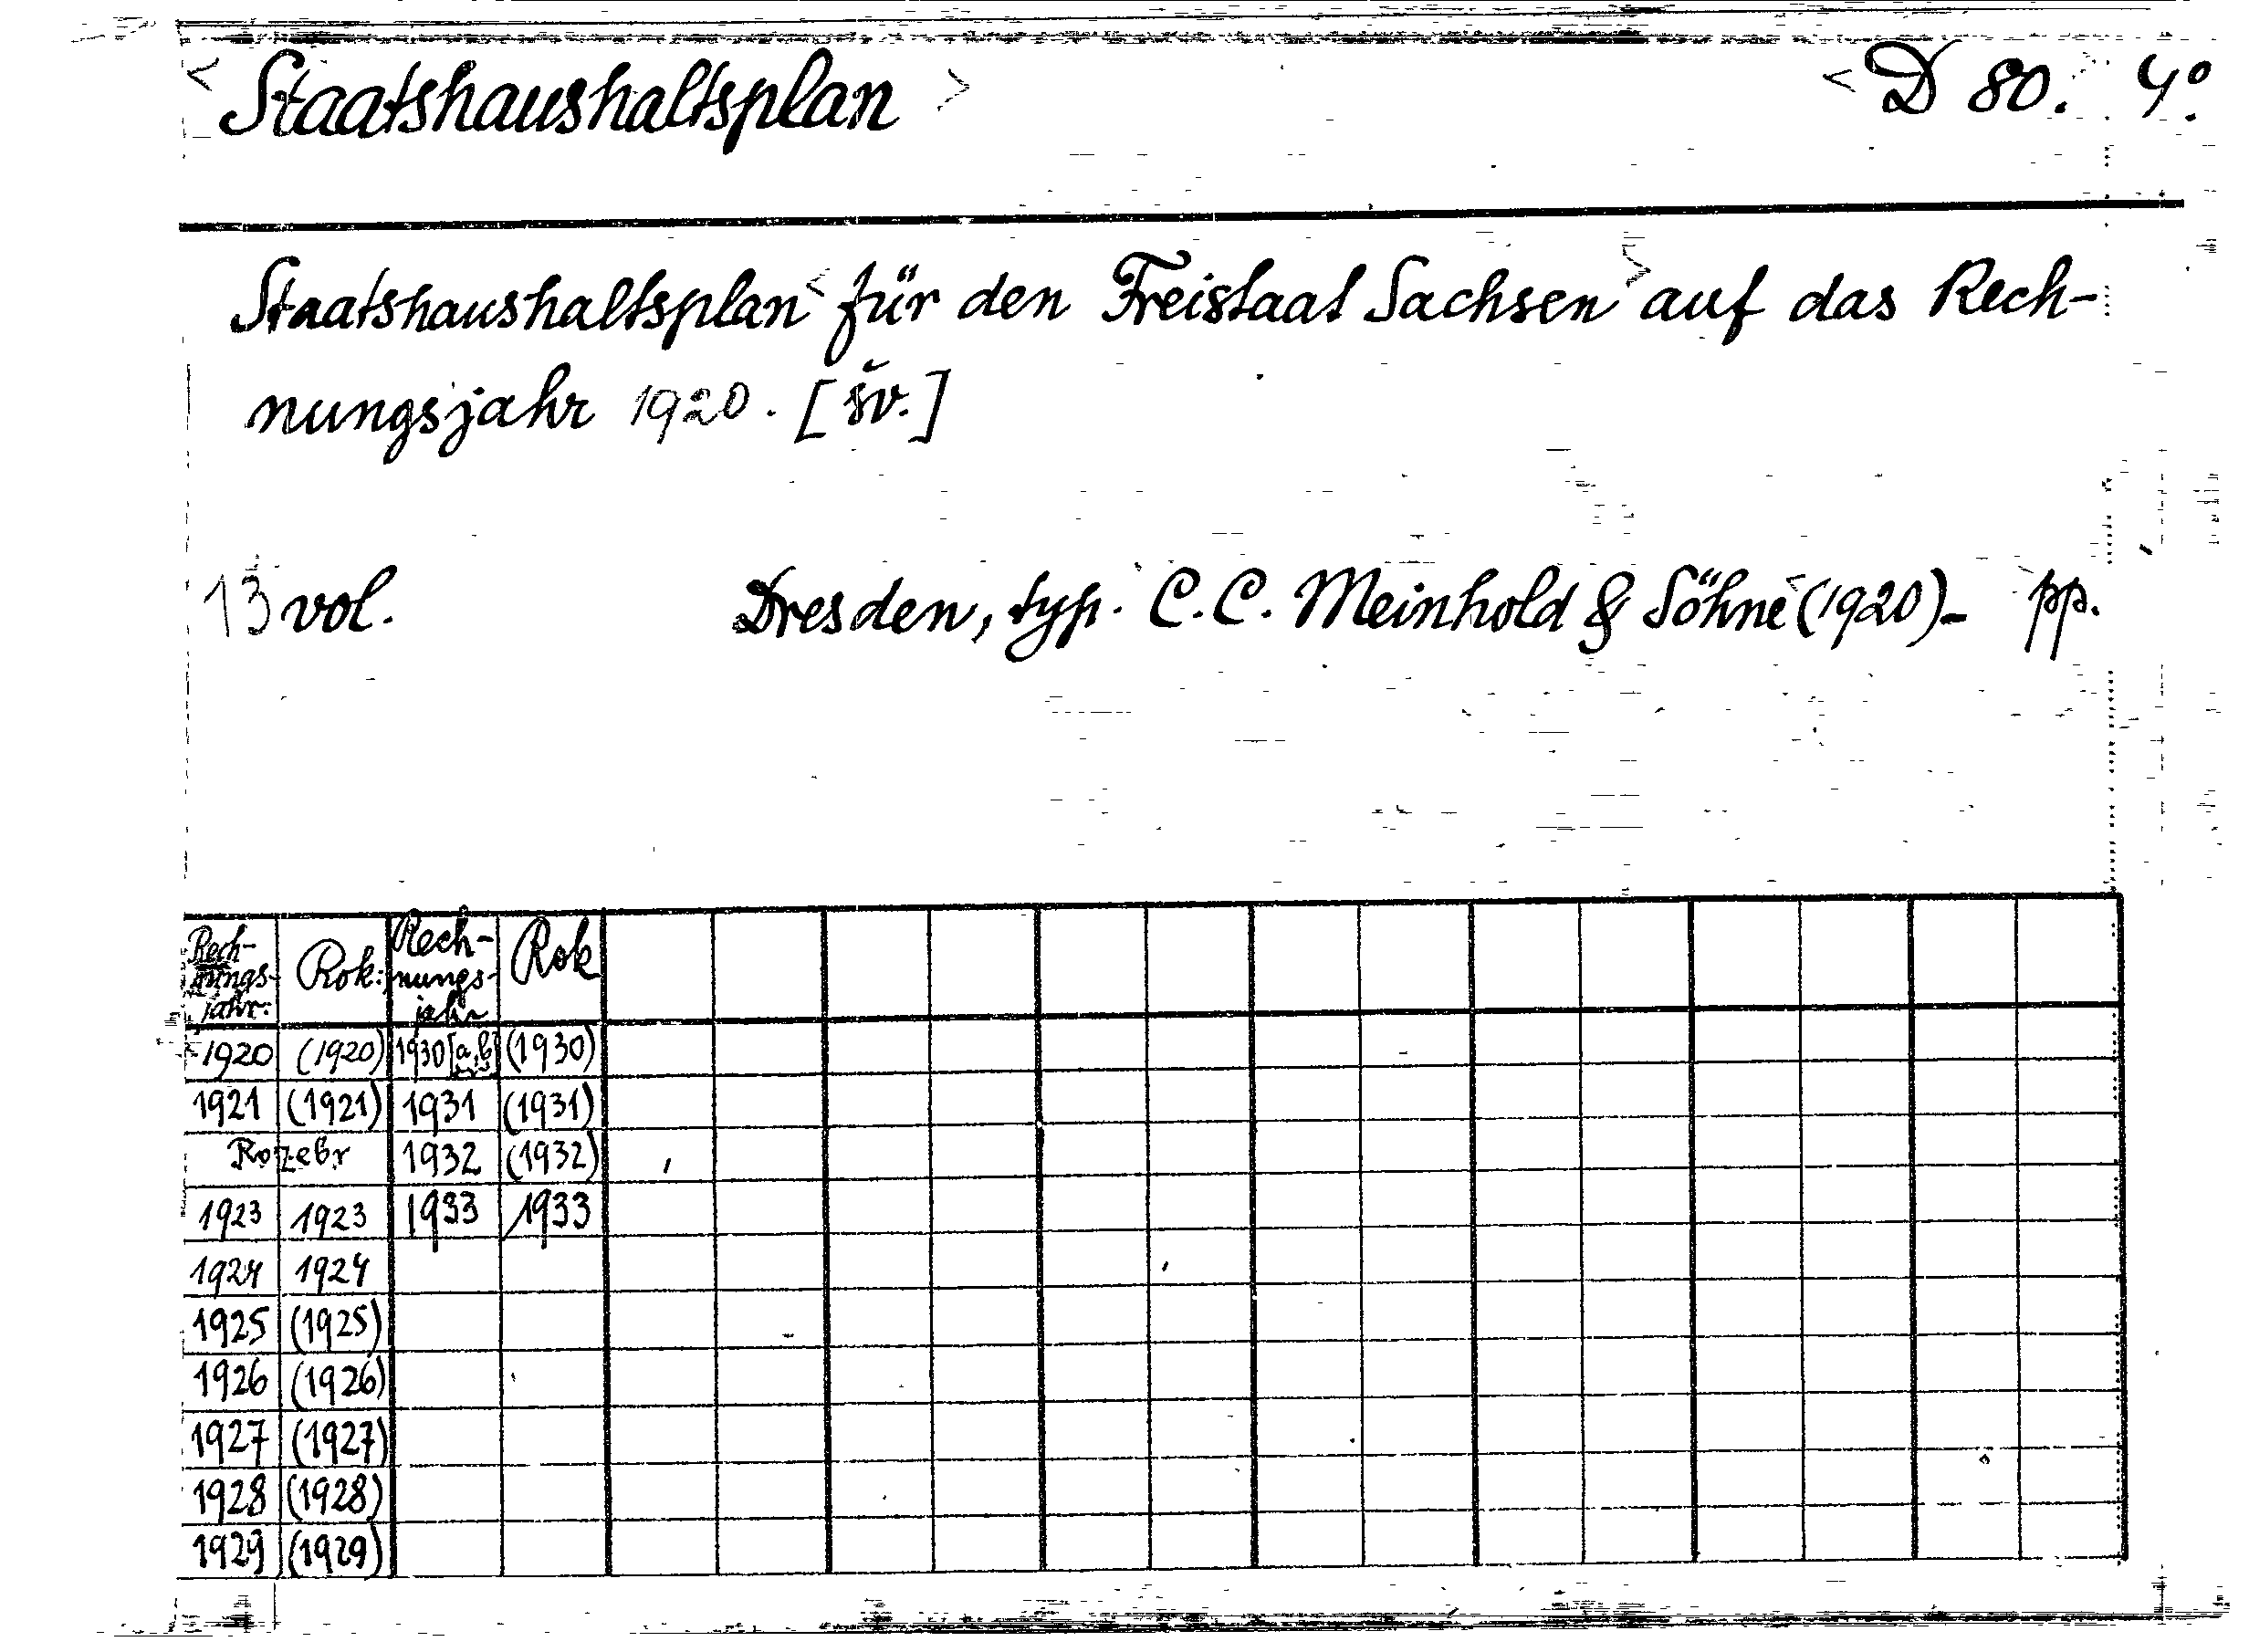 < Staatshaushaltsplan > < D 80. 4°.
Staatshaushaltsplan < für den Freistaat Sachsen > auf das Rech-
nungsjahr 1920. [šv.]
13 vol. Dresden, typ. C. C. Meinhold & Söhne (1920)- pp.
Rech-nungs-jahr: Rok: Rech-nungs-jahr Rok
1920 (1920) 1930 [a,b] (1930)
1921 (1921) 1931 (1931)
Rozebr 1932 (1932)
1923 1923 1933 1933
1924 1924
1925 (1925)
1926 (1926)
1927 (1927)
1928 (1928)
1929 (1929)